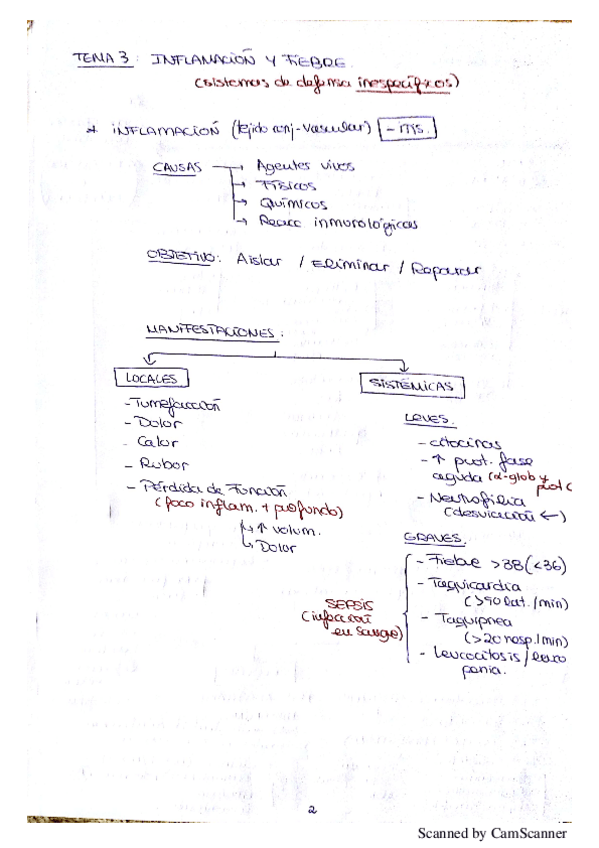 TEMA 3: INFLAMACIÓN Y FIEBRE.
(sistemas de defensa inespecíficos)
* INFLAMACIÓN (tejido conj-vascular) - itis.
CAUSAS → Agentes vivos
→ Físicos
→ Químicos
→ Reacc inmunológicas
OBJETIVO: Aislar / Eliminar / Reparar
MANIFESTACIONES:
LOCALES
- Tumefacción
- Dolor
- Calor
- Rubor
- Pérdida de Función
(foco inflam. + profundo)
↳ ↑ volum.
↳ Dolor
SISTÉMICAS
LEVES.
- citocinas
- ↑ prot. fase
aguda (α-glob y
prot C
- Neutrofilia
(desviación ←)
GRAVES.
SEPSIS
(infección
en sangre)
- Fiebre >38 (<36)
- Taquicardia
(>90 lat./min)
- Taquipnea
(>20 resp./min)
- Leucocitosis / leuco
penia.
2
Scanned by CamScanner